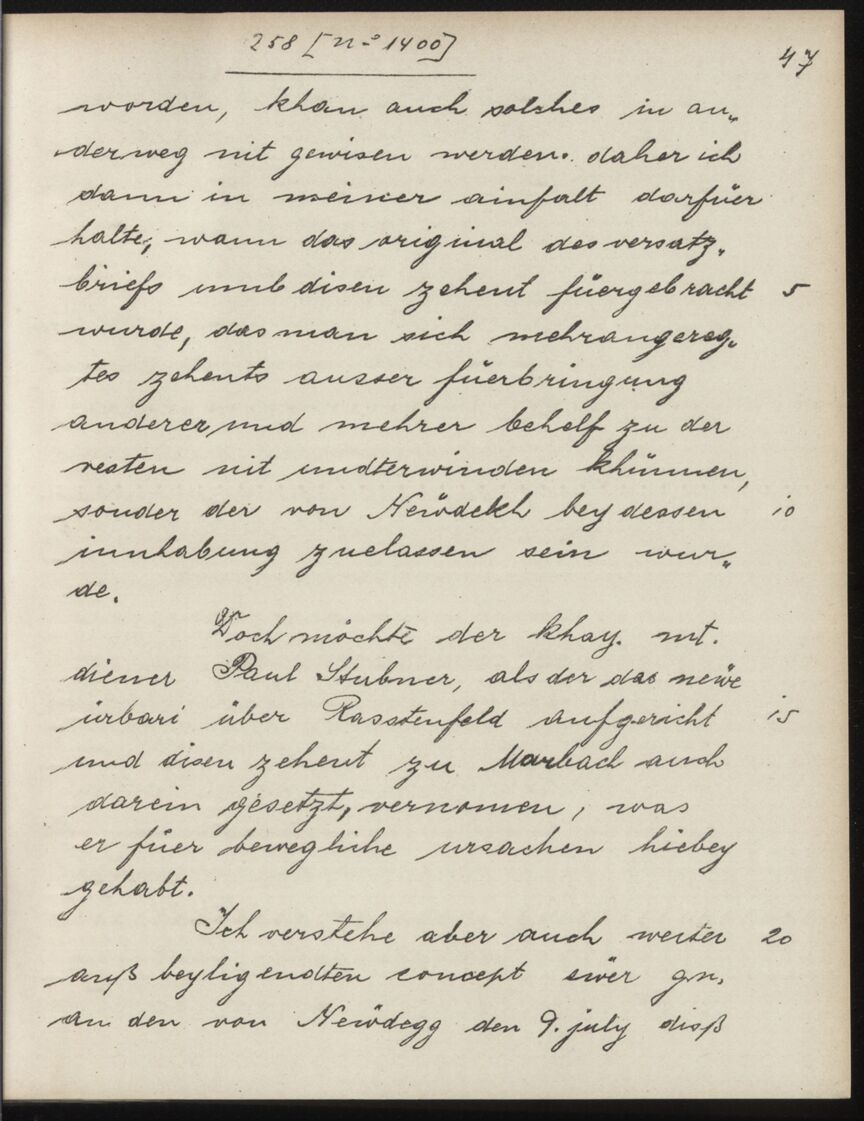 258 [No 1400]
47
worden, khan auch solches in an„
derweg nit gewisen werden. daher ich
dann in meiner ainfalt darfüer
halte, wann das original des versatz„
briefs umb disen zehent füergebracht 5
wurde, das man sich mehrangereg„
tes zehents ausser füerbringung
anderer und mehrer behelf zu der
vesten nit undterwinden khünnen,
sonder der von Newdekh bey dessen 10
innhabung zuelassen sein wur„
de.
Doch möchte der khay. mt.
diener Paul Stubner, als der das newe
urbari über Rasstenfeld aufgericht 15
und disen zehent zu Marbach auch
darein gesetzt, vernomen, was
er füer bewegliche ursachen hiebey
gehabt.
Ich verstehe aber auch weiter 20
auß beyligendten concept ewer gn.
an den von Newdegg den 9. july diß